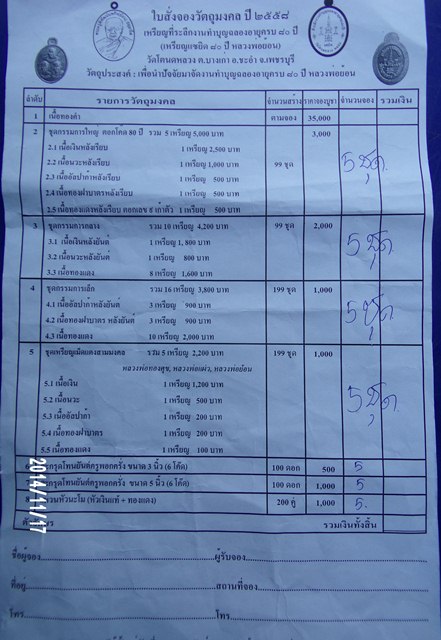 ใบสั่งจองวัตถุมงคล ปี ๒๕๕๘
เหรียญที่ระลึกงานทำบุญฉลองอายุครบ ๘๐ ปี
(เหรียญแซยิด ๘๐ ปี หลวงพ่อย้อน)
วัดโตนดหลวง ต.บางเก่า อ.ชะอำ จ.เพชรบุรี
วัตถุประสงค์ : เพื่อนำปัจจัยมาจัดงานทำบุญฉลองอายุครบ ๘๐ ปี หลวงพ่อย้อน
ลำดับ รายการวัตถุมงคล จำนวนสร้าง ราคาจองบูชา จำนวนจอง รวมเงิน
1 เนื้อทองคำ ตามจอง 35,000
2 ชุดกรรมการใหญ่ ตอกโค๊ด 80 ปี รวม 5 เหรียญ 5,000 บาท 3,000
2.1 เนื้อเงินหลังเรียบ 1 เหรียญ 2,500 บาท
2.2 เนื้อนวะหลังเรียบ 1 เหรียญ 1,000 บาท 99 ชุด 5 ชุด
2.3 เนื้ออัลปาก้าหลังเรียบ 1 เหรียญ 500 บาท
2.4 เนื้อทองฝาบาตรหลังเรียบ 1 เหรียญ 500 บาท
2.5 เนื้อทองแดงหลังเรียบ ตอกเลข ๕ เก้าตัว 1 เหรียญ 500 บาท
3 ชุดกรรมการกลาง รวม 10 เหรียญ 4,200 บาท 99 ชุด 2,000
3.1 เนื้อเงินหลังยันต์ 1 เหรียญ 1,800 บาท 5 ชุด
3.2 เนื้อนวะหลังยันต์ 1 เหรียญ 800 บาท
3.3 เนื้อทองแดง 8 เหรียญ 1,600 บาท
4 ชุดกรรมการเล็ก รวม 16 เหรียญ 3,800 บาท 199 ชุด 1,000
4.1 เนื้ออัลปาก้า หลังยันต์ 3 เหรียญ 900 บาท 5 ชุด
4.2 เนื้อทองฝาบาตร หลังยันต์ 3 เหรียญ 900 บาท
4.3 เนื้อทองแดง 10 เหรียญ 2,000 บาท
5 ชุดเหรียญเม็ดแตงสามมงคล รวม 5 เหรียญ 2,200 บาท 199 ชุด 1,000
หลวงพ่อทองศุข, หลวงพ่อแผ่ว, หลวงพ่อย้อน
5.1 เนื้อเงิน 1 เหรียญ 1,200 บาท
5.2 เนื้อนวะ 1 เหรียญ 500 บาท 5 ชุด
5.3 เนื้ออัลปาก้า 1 เหรียญ 200 บาท
5.4 เนื้อทองฝาบาตร 1 เหรียญ 200 บาท
5.5 เนื้อทองแดง 1 เหรียญ 100 บาท
6 ตะกรุดโทนยันต์ครูพอกครั่ง ขนาด 3 นิ้ว (6 โค๊ด) 100 ดอก 500 5
7 ตะกรุดโทนยันต์ครูพอกครั่ง ขนาด 5 นิ้ว (6 โค๊ด) 100 ดอก 1,000 5
8 แหวนหัวนะโม (หัวเงินแท้ + ทองแดง) 200 คู่ 1,000 5.
รวมเงินทั้งสิ้น
ชื่อผู้จอง ผู้รับจอง
ที่อยู่ สถานที่จอง
โทร โทร
2014/11/17